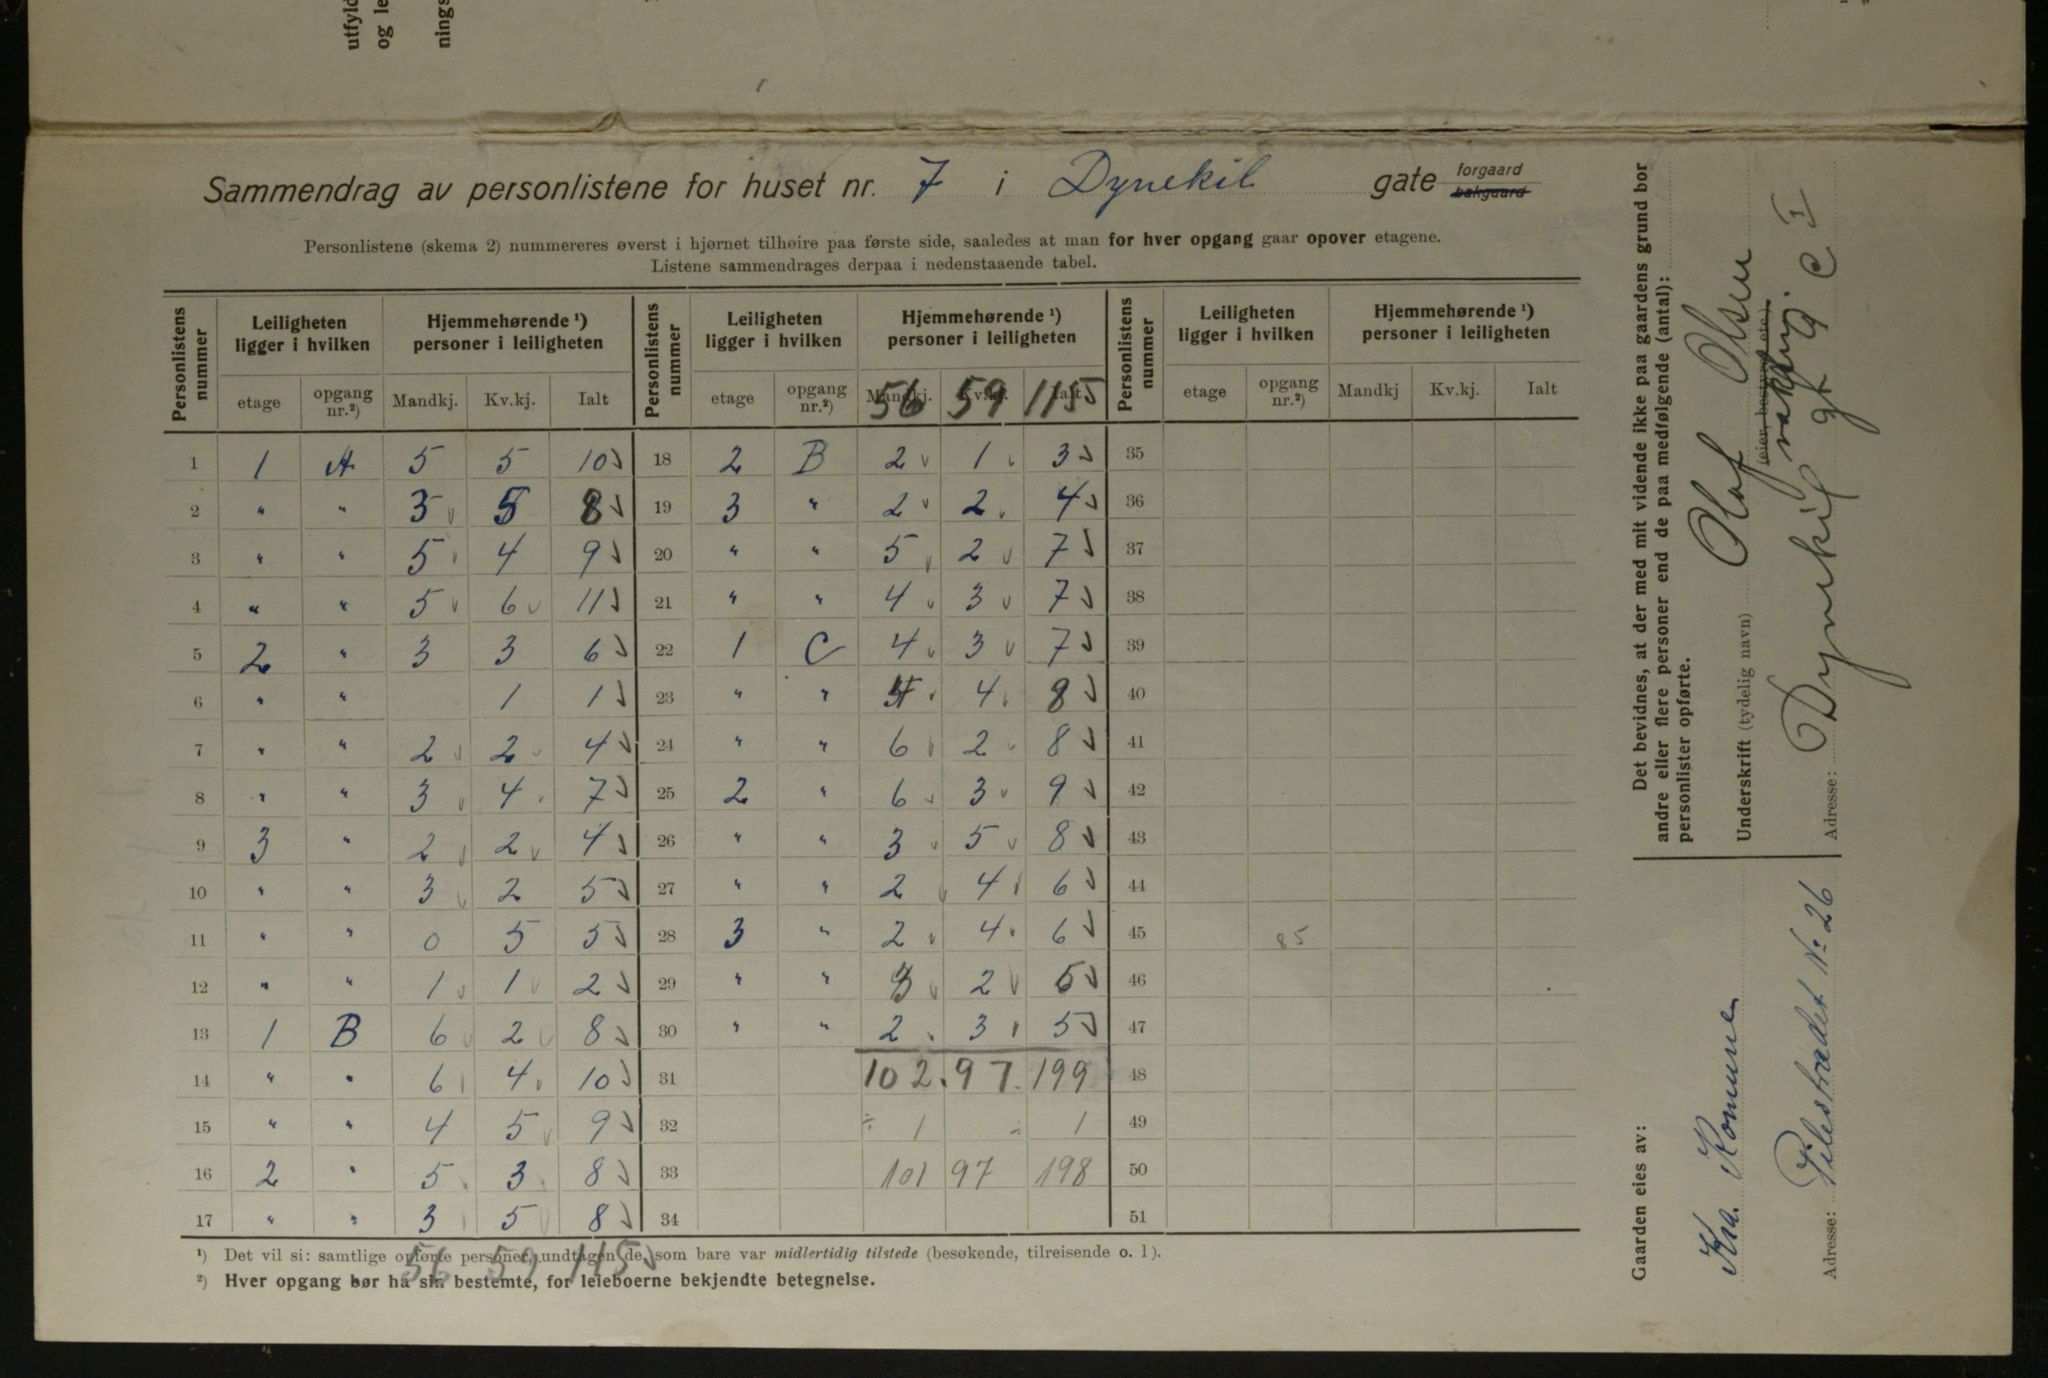 utfyld
og le
nings
Sammendrag av personlistene for huset nr. 7 i Dynekil gate forgaard
bakgaard
Personlistene (skema 2) nummereres øverst i hjørnet tilhøire paa første side, saaledes at man for hver opgang gaar opover etagene.
Listene sammendrages derpaa i nedenstaaende tabel.
Personlistens nummer | Leiligheten ligger i hvilken | Hjemmehørende ¹) personer i leiligheten | Personlistens nummer | Leiligheten ligger i hvilken | Hjemmehørende ¹) personer i leiligheten | Personlistens nummer | Leiligheten ligger i hvilken | Hjemmehørende ¹) personer i leiligheten
etage | opgang nr.²) | Mandkj. | Kv.kj. | Ialt | etage | opgang nr.²) | Mandkj. | Kv.kj. | Ialt | etage | opgang nr.²) | Mandkj | Kv.kj. | Ialt
56 59 115
1 | 1 | A | 5 | 5 | 10 | 18 | 2 | B | 2 | 1 | 3 | 35
2 | " | " | 3 | 5 | 8 | 19 | 3 | " | 2 | 2 | 4 | 36
3 | " | " | 5 | 4 | 9 | 20 | " | " | 5 | 2 | 7 | 37
4 | " | " | 5 | 6 | 11 | 21 | " | " | 4 | 3 | 7 | 38
5 | 2 | " | 3 | 3 | 6 | 22 | 1 | C | 4 | 3 | 7 | 39
6 | " | " | | 1 | 1 | 23 | " | " | 4 | 4 | 8 | 40
7 | " | " | 2 | 2 | 4 | 24 | " | " | 6 | 2 | 8 | 41
8 | " | " | 3 | 4 | 7 | 25 | 2 | " | 6 | 3 | 9 | 42
9 | 3 | " | 2 | 2 | 4 | 26 | " | " | 3 | 5 | 8 | 43
10 | " | " | 3 | 2 | 5 | 27 | " | " | 2 | 4 | 6 | 44
11 | " | " | 0 | 5 | 5 | 28 | 3 | " | 2 | 4 | 6 | 45 | | 85
12 | " | " | 1 | 1 | 2 | 29 | " | " | 3 | 2 | 5 | 46
13 | 1 | B | 6 | 2 | 8 | 30 | " | " | 2 | 3 | 5 | 47
14 | " | " | 6 | 4 | 10 | 31 | | | 102 | 97 | 199 | 48
15 | " | " | 4 | 5 | 9 | 32 | | | ÷ 1 | | ÷ 1 | 49
16 | 2 | " | 5 | 3 | 8 | 33 | | | 101 | 97 | 198 | 50
17 | " | " | 3 | 5 | 8 | 34 | | | | | | 51
56 59 115
¹) Det vil si: samtlige opførte personer, undtagen de, som bare var midlertidig tilstede (besøkende, tilreisende o. l).
²) Hver opgang bør ha sin bestemte, for leieboerne bekjendte betegnelse.
Det bevidnes, at der med mit vidende ikke paa gaardens grund bor
andre eller flere personer end de paa medfølgende (antal):
personlister opførte.
Underskrift (tydelig navn) Olaf Olsen
(eier, bestyrer etc.)
Adresse: Dynekil gt 9 C I
Gaarden eies av:
Kra. Kommune
Adresse: Pilestrædet No 26